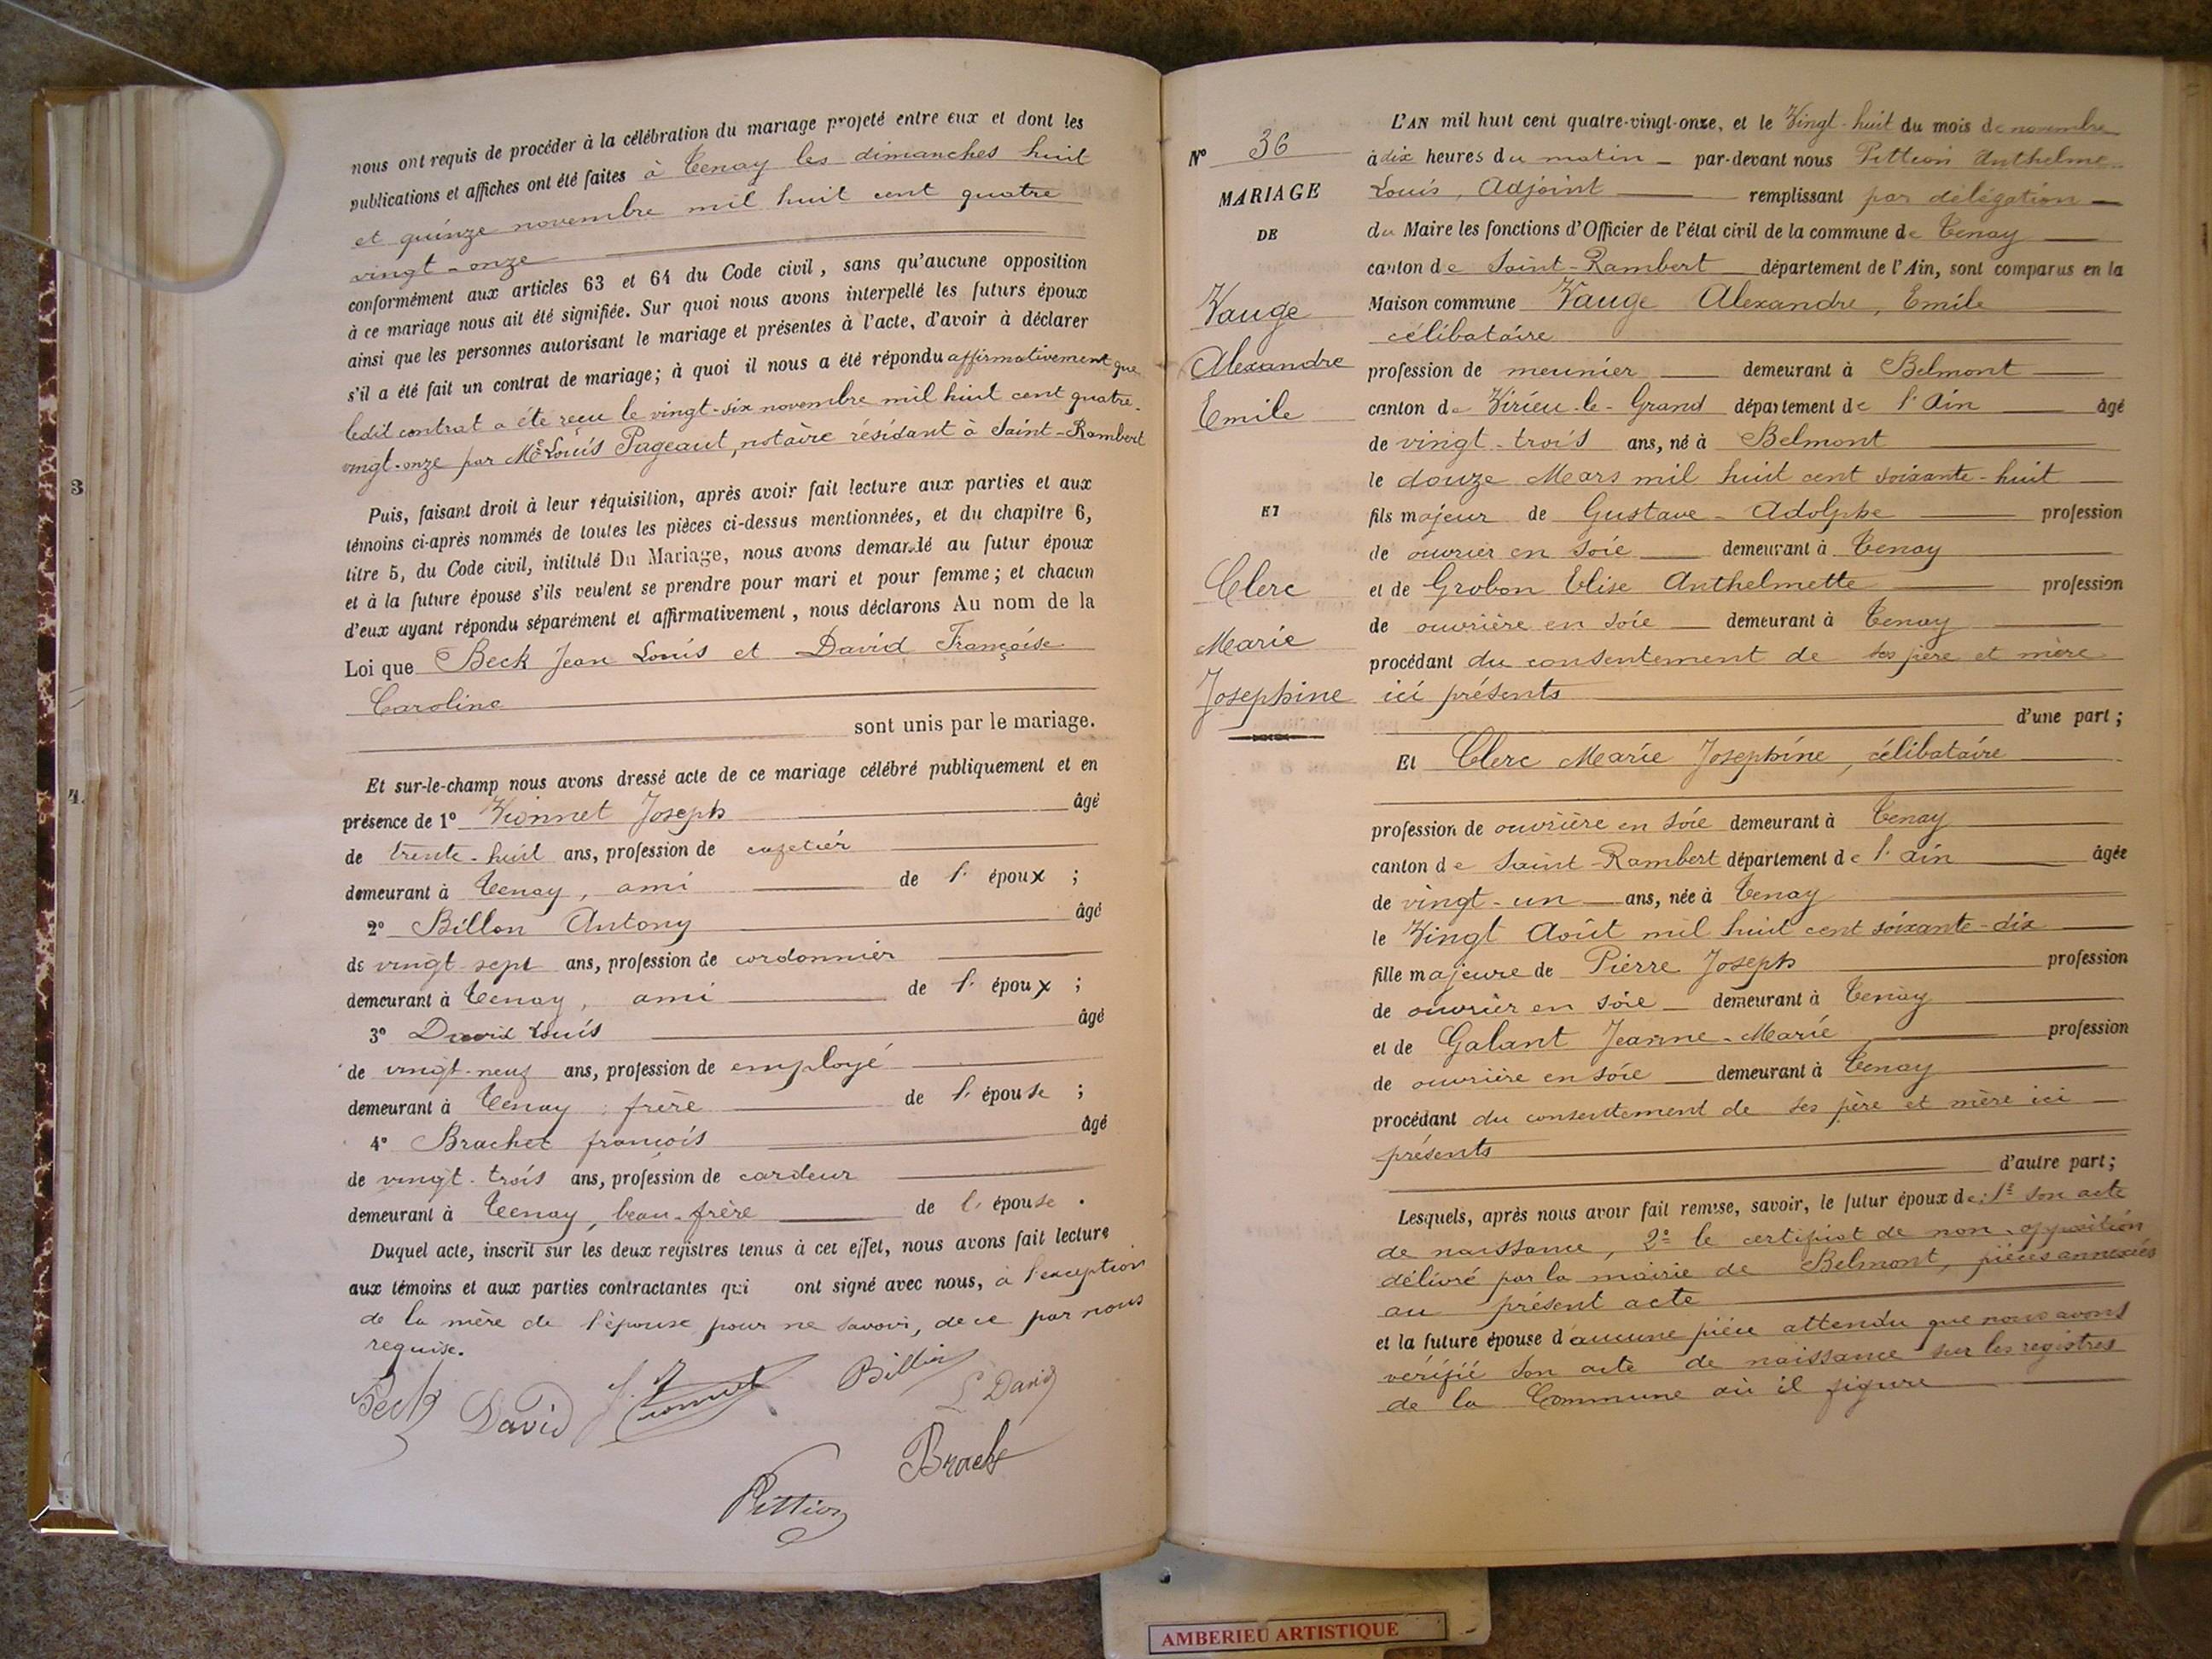 nous ont requis de procéder à la célébration du mariage projeté entre eux et dont les
publications et affiches ont été faites à Tenay les dimanches huit
et quinze novembre mil huit cent quatre
vingt-onze
conformément aux articles 63 et 64 du Code civil, sans qu'aucune opposition
à ce mariage nous ait été signifiée. Sur quoi nous avons interpellé les futurs époux
ainsi que les personnes autorisant le mariage et présentes à l'acte, d'avoir à déclarer
s'il a été fait un contrat de mariage; à quoi il nous a été répondu affirmativement que
ledit contrat a été reçu le vingt-six novembre mil huit cent quatre-
vingt-onze par Me Louis Pageaut, notaire résidant à Saint-Rambert
Puis, faisant droit à leur réquisition, après avoir fait lecture aux parties et aux
témoins ci-après nommés de toutes les pièces ci-dessus mentionnées, et du chapitre 6,
titre 5, du Code civil, intitulé Du Mariage, nous avons demandé au futur époux
et à la future épouse s'ils veulent se prendre pour mari et pour femme; et chacun
d'eux ayant répondu séparément et affirmativement, nous déclarons Au nom de la
Loi que Beck Jean Louis et David Françoise
Caroline
sont unis par le mariage.
Et sur-le-champ nous avons dressé acte de ce mariage célébré publiquement et en
présence de 1° Vionnet Joseph âgé
de trente-huit ans, profession de
demeurant à Tenay, ami de l' époux ;
2° Billon Antony âgé
de vingt-sept ans, profession de cordonnier
demeurant à Tenay, ami de l' époux ;
3° David Louis âgé
de vingt-neuf ans, profession de employé
demeurant à Tenay, frère de l' épouse ;
4° Brachet françois âgé
de vingt-trois ans, profession de cardeur
demeurant à Tenay, beau-frère de l' épouse .
Duquel acte, inscrit sur les deux registres tenus à cet effet, nous avons fait lecture
aux témoins et aux parties contractantes qui ont signé avec nous, à l'exception
de la mère de l'épouse pour ne savoir, de ce par nous
requise.
Beck David J. Vionnet Billon L David
Brachet
Pittion
3
4.
N° 36
MARIAGE
DE
Vauge
Alexandre
Emile
ET
Clerc
Marie
Josephine
L'AN mil huit cent quatre-vingt-onze, et le Vingt-huit du mois de novembre
à dix heures du matin par-devant nous Pittion Anthelme
Louis, Adjoint remplissant par délégation
du Maire les fonctions d'Officier de l'état civil de la commune de Tenay
canton de Saint-Rambert département de l'Ain, sont comparus en la
Maison commune Vauge Alexandre, Emile
célibataire
profession de meunier demeurant à Belmont
canton de Virieu-le-Grand département de l'Ain âgé
de vingt-trois ans, né à Belmont
le douze Mars mil huit cent soixante-huit
fils majeur de Gustave-Adolphe profession
de ouvrier en soie demeurant à Tenay
et de Grobon Elise Anthelmette profession
de ouvrière en soie demeurant à Tenay
procédant du consentement de ses père et mère
ici présents
d'une part;
Et Clerc Marie Josephine, célibataire
profession de ouvrière en soie demeurant à Tenay
canton de Saint-Rambert département de l'ain âgée
de vingt-un ans, née à Tenay
le Vingt Août mil huit cent soixante-dix
fille majeure de Pierre Joseph profession
de ouvrier en soie demeurant à Tenay
et de Galant Jeanne-Marie profession
de ouvrière en soie demeurant à Tenay
procédant du consentement de ses père et mère ici
présents
d'autre part;
Lesquels, après nous avoir fait remise, savoir, le futur époux de: 1° son acte
de naissance, 2° le certificat de non-opposition
délivré par la mairie de Belmont, pièces annexées
au présent acte
et la future épouse d'aucune pièce attendu que nous avons
vérifié son acte de naissance sur les registres
de la Commune où il figure
AMBERIEU ARTISTIQUE